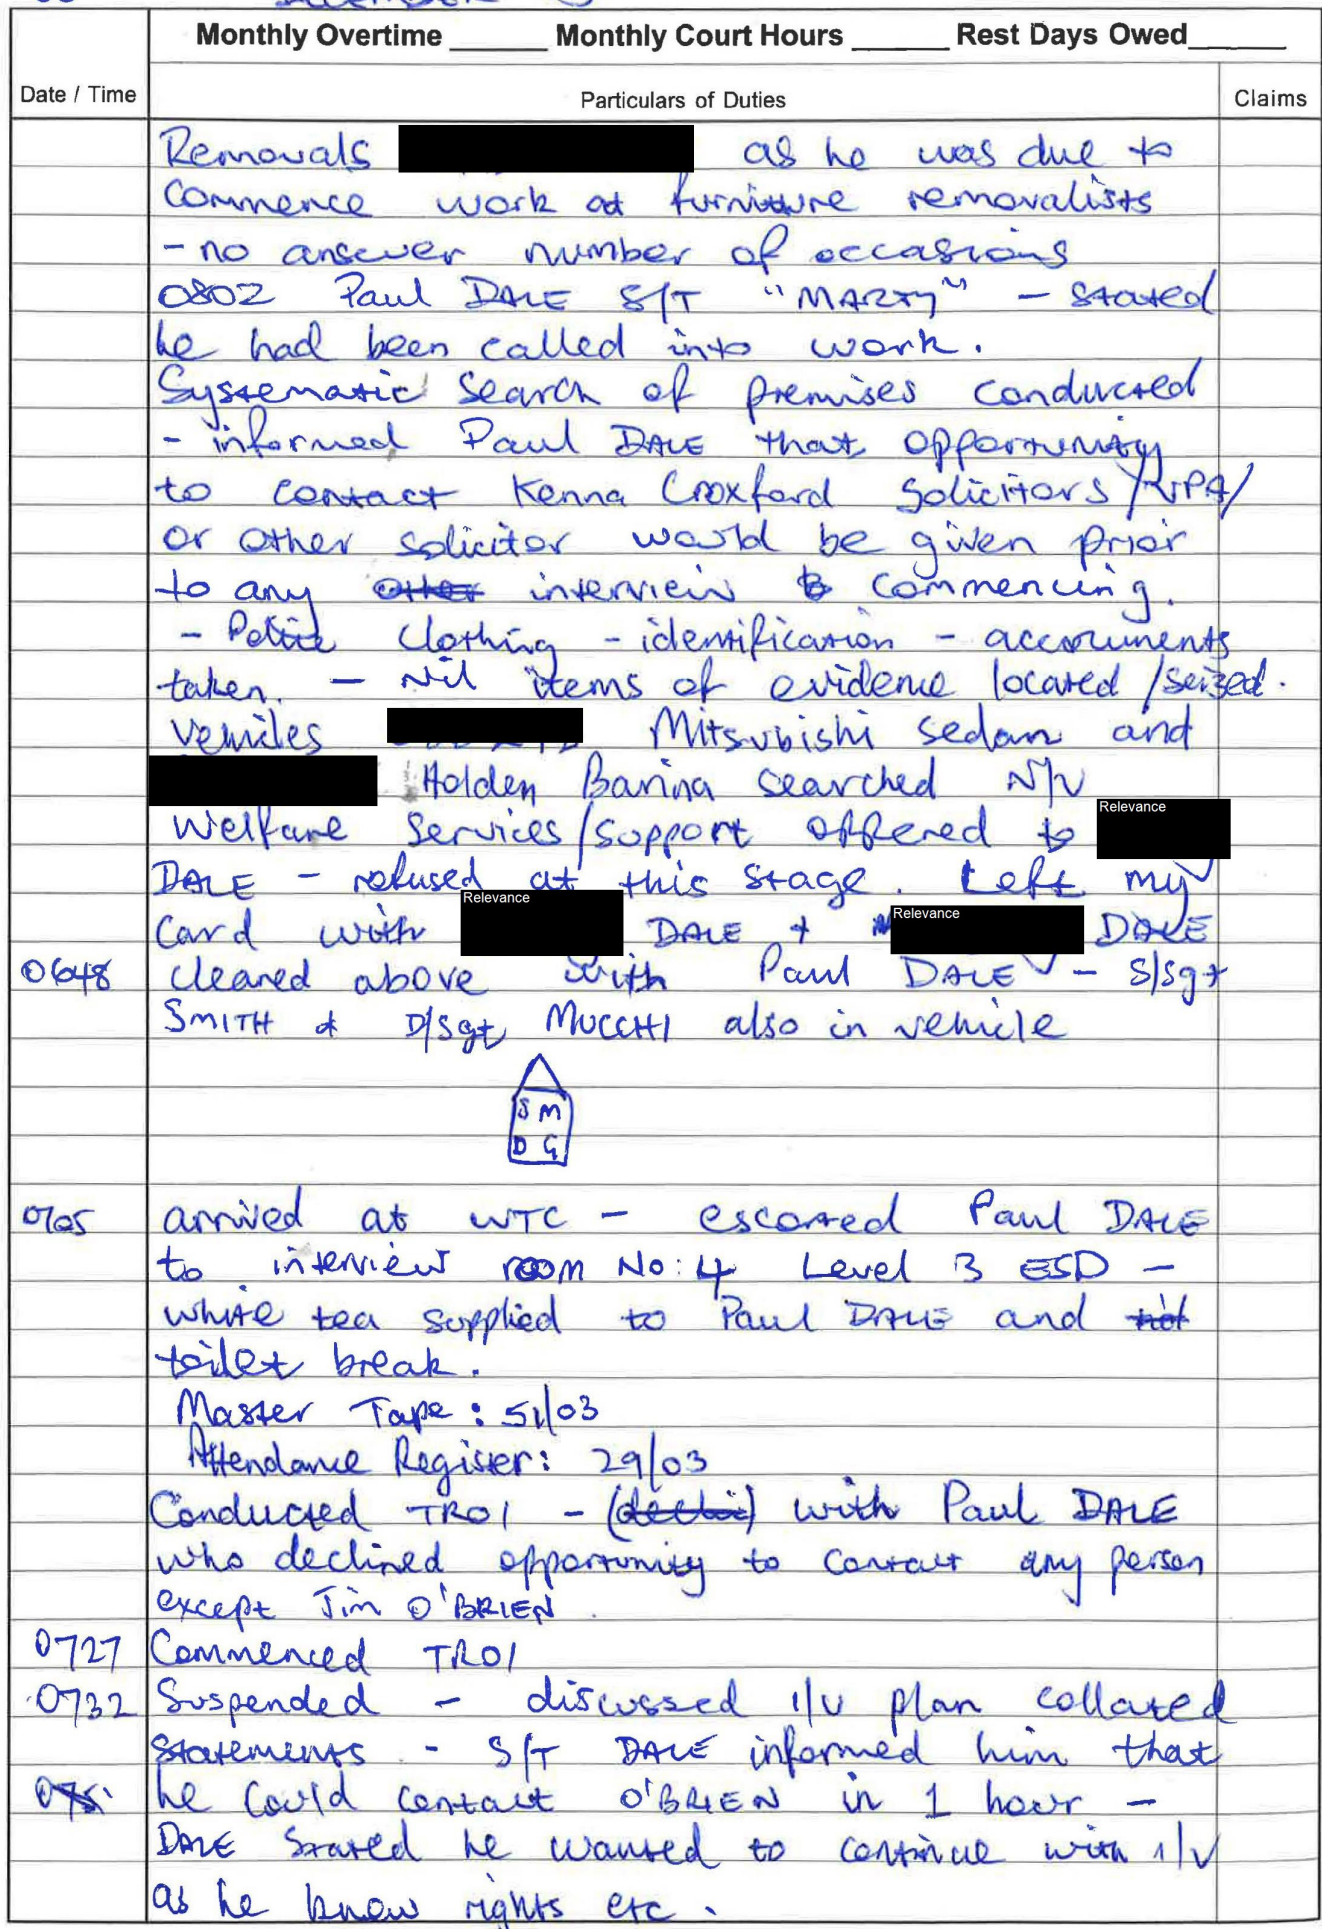 Monthly Overtime ______ Monthly Court Hours ______ Rest Days Owed______
Date / Time Particulars of Duties Claims
Removals as he was due to
commence work at furniture removalists
- no answer number of occasions
0802 Paul DALE S/T "MARTY" - stated
he had been called into work.
Systematic search of premises conducted
- informed Paul DALE that opportunity
to contact Kenna Croxford Solicitors /
or other solicitor would be given prior
to any other interview commencing.
- Police clothing - identification - accourments
taken. - Nil items of evidence located /seized.
Vehicles Mitsubishi sedan and
Holden Barina searched N/V
Relevance
Welfare Services/support offered to
DALE - refused at this stage. Left my
Relevance Relevance
Card with DALE + DALE
0648 cleared above with Paul DALE - S/Sgt
SMITH + D/Sgt MUCCHI also in vehicle
S M
D G
0705 arrived at WTC - escorted Paul DALE
to interview room No: 4 Level 3 ESD -
white tea supplied to Paul DALE and
toilet break.
Master Tape: 51/03
Attendance Register: 29/03
Conducted TROI - with Paul DALE
who declined opportunity to contact any person
except Jim O'BRIEN
0727 Commenced TROI
0732 Suspended - discussed I/V plan collated
statements - S/T DALE informed him that
he could contact O'BRIEN in 1 hour -
DALE stated he wanted to continue with I/V
as he knew rights etc.